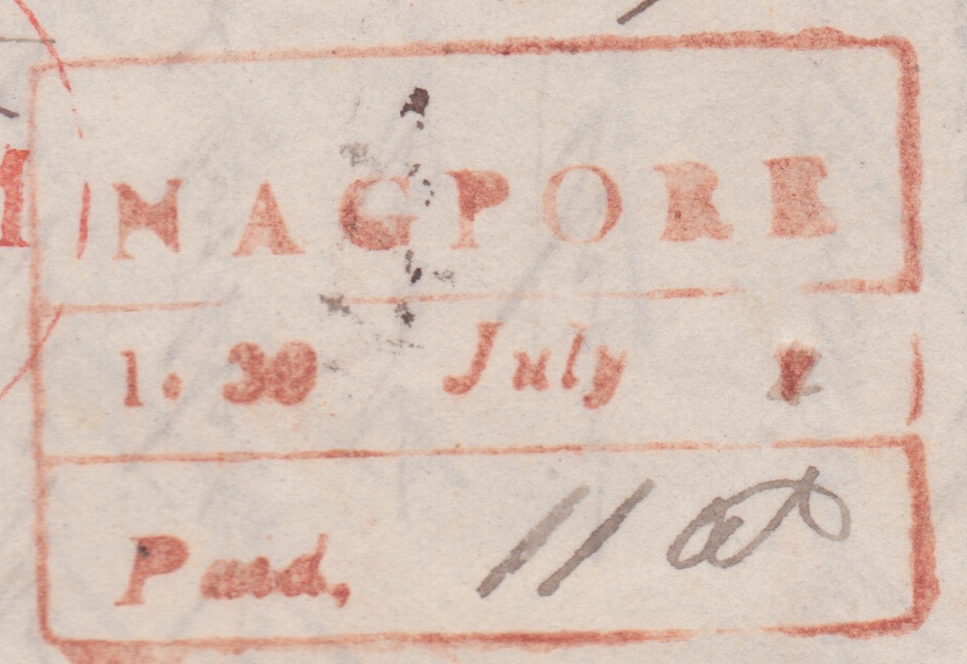 NAGPORE
1. 30 July
Paid, 11 as